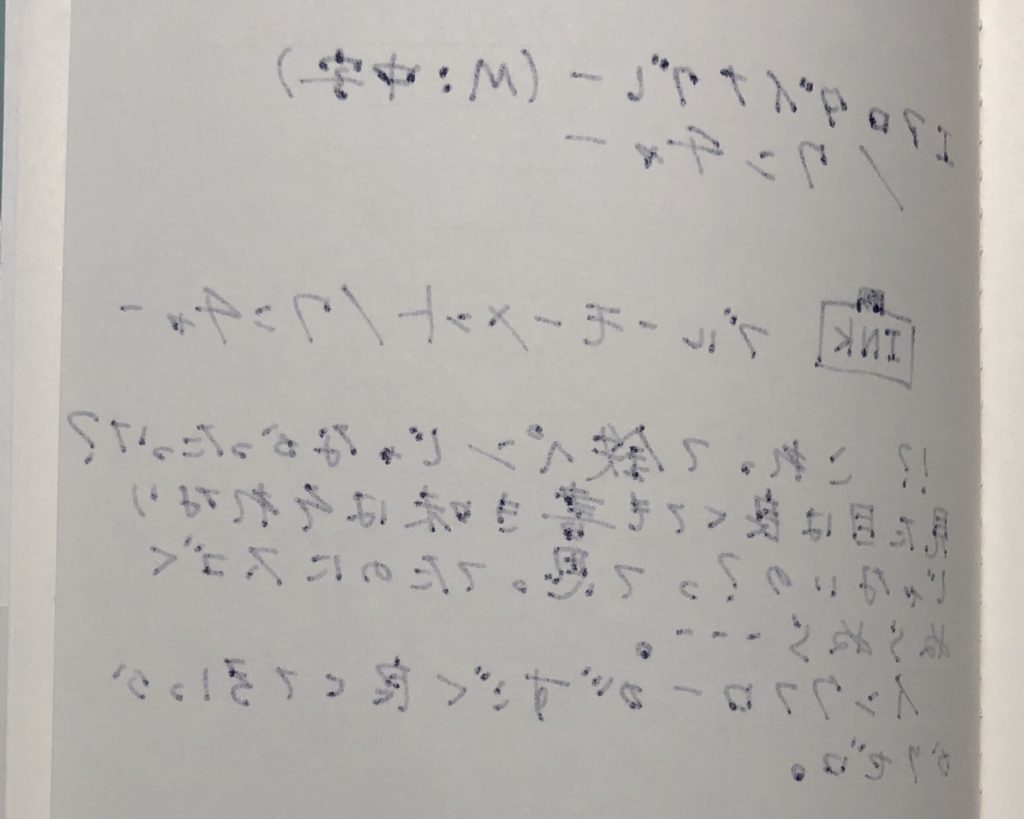 エアロダイナブレー(M:中字)
/ワンチャー
INK ブルーモーメント/ワンチャー
!? これ。て鉄ペンじゃなかったって?
見た目は良くても書き味はそれなり
じゃないの?っ て思。てたのにスゴく
ぬらぬら・・・。
インクフローがすごく良くて引っか
かりゼロ。